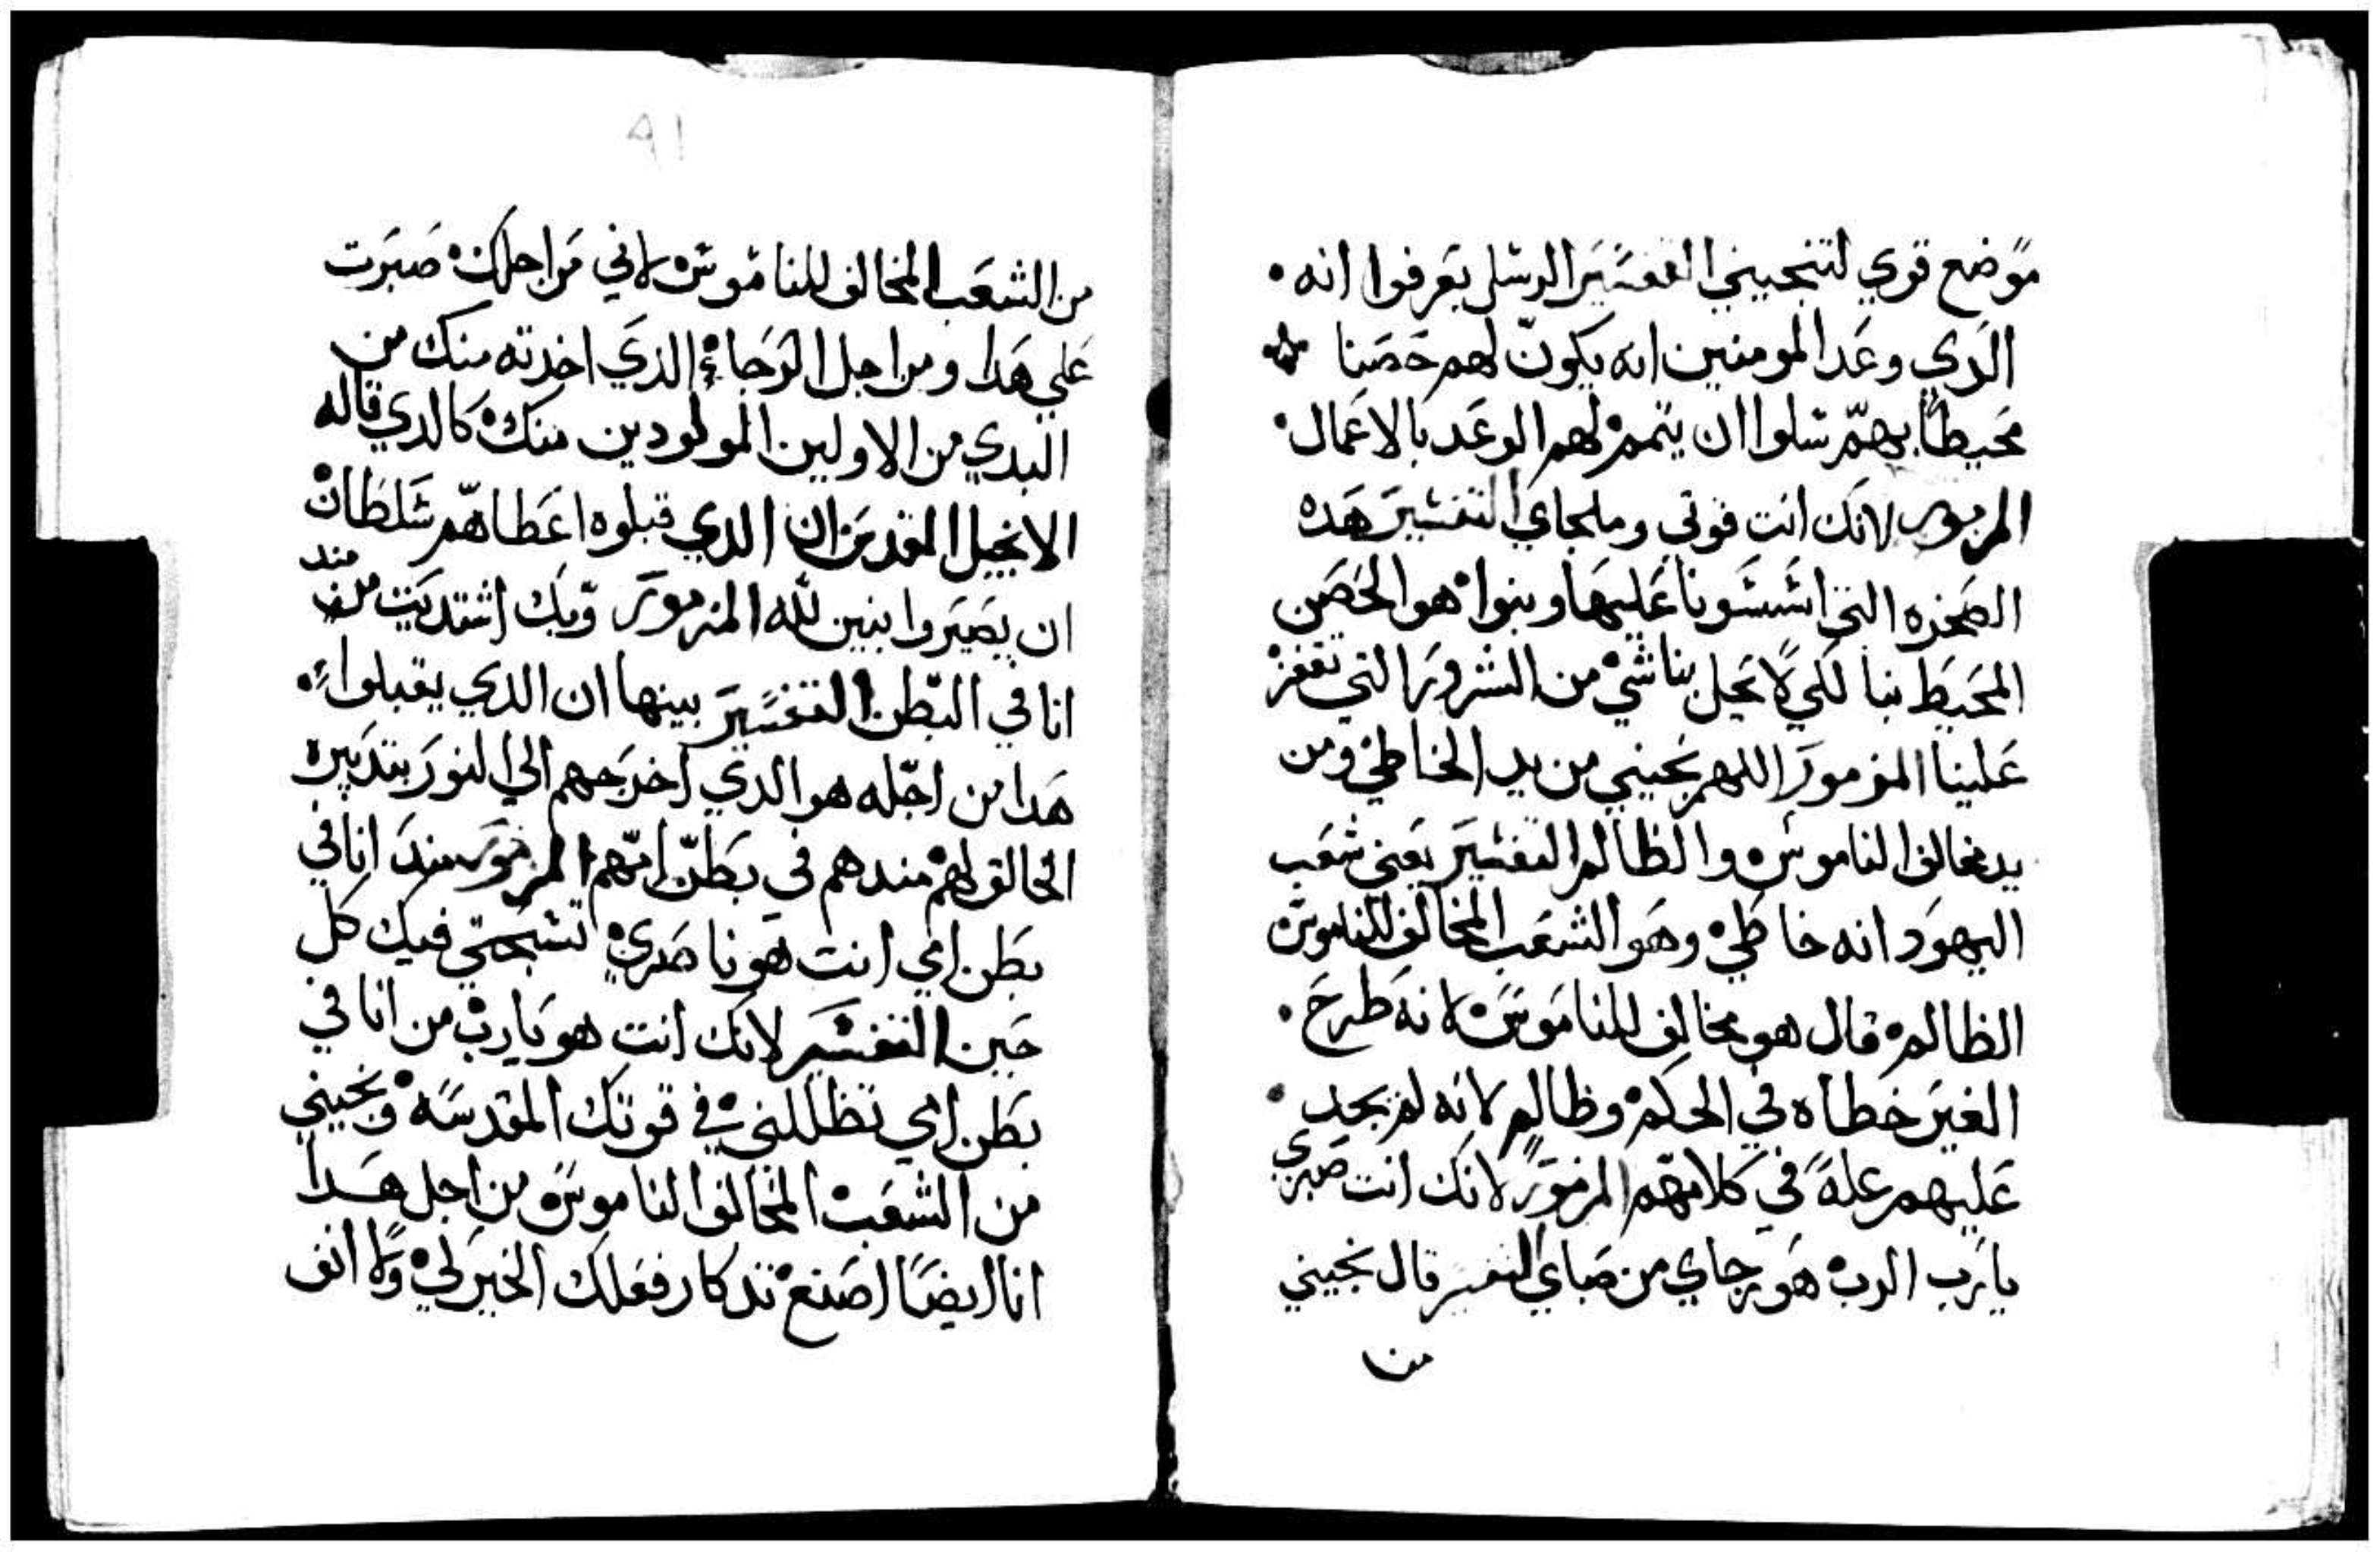 موضع قوي لتنجيني التفسير الرسل يعرفوا انه
الدي وعد المومنين انه يكون لهم حصنا
محيطا بهم سلوا ان يتمم لهم الوعد بالاعمال
المزمور لانك انت قوتي وملجاي التفسير هده
الصخره التي اسسونا عليها وبنوا هو الحصن
المحيط بنا لكي لا يحل بنا شي من الشرور التي تقفز
علينا المزمور اللهم نجيني من يد الخاطي ومن
يد مخالف الناموس والظالم التفسير يعني شعب
اليهود انه خاطي وهو الشعب المخالف للناموس
الظالم قال هو مخالف للناموس لانه طرح
الغير خطاه في الحكم وظالم لانه لم يجد
عليهم علة في كلامهم المزمور لانك انت صبري
يارب الرب هو رجاي من صباي التفسير قال نجيني
من
91
من الشعب المخالف للناموس لاني من اجلك صبرت
علي هدا ومن اجل الرجاء الذي اخدته منك من
البدي من الاولين المولودين منك كالدي قاله
الانجيل المقدس ان الدي قبلوه اعطاهم سلطان
ان يصيروا بنين لله المزمور وبك اشتديت مند
انا في البطن التفسير بينها ان الدي يقبلوا
هدا من اجله هو الدي اخرجهم الي النور بتدبيره
الخالق لهم مندهم في بطن امهم المزمور مند انا في
بطن امي انت هو ناصري تسبحتي فيك كل
حين التفسير لانك انت هو يارب من انا في
بطن امي تظللني في قوتك المقدسه ونجيني
من الشعب المخالف الناموس من اجل هدا
انا ايضا اصنع تدكار فعلك الخير لي ولا انف